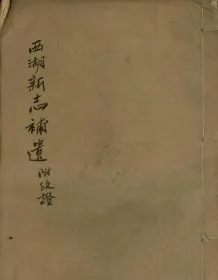 西湖新志補遺附攷證